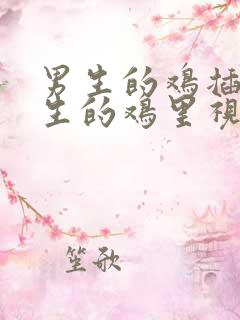 男生的鸡插
生的鸡里视
笙歌